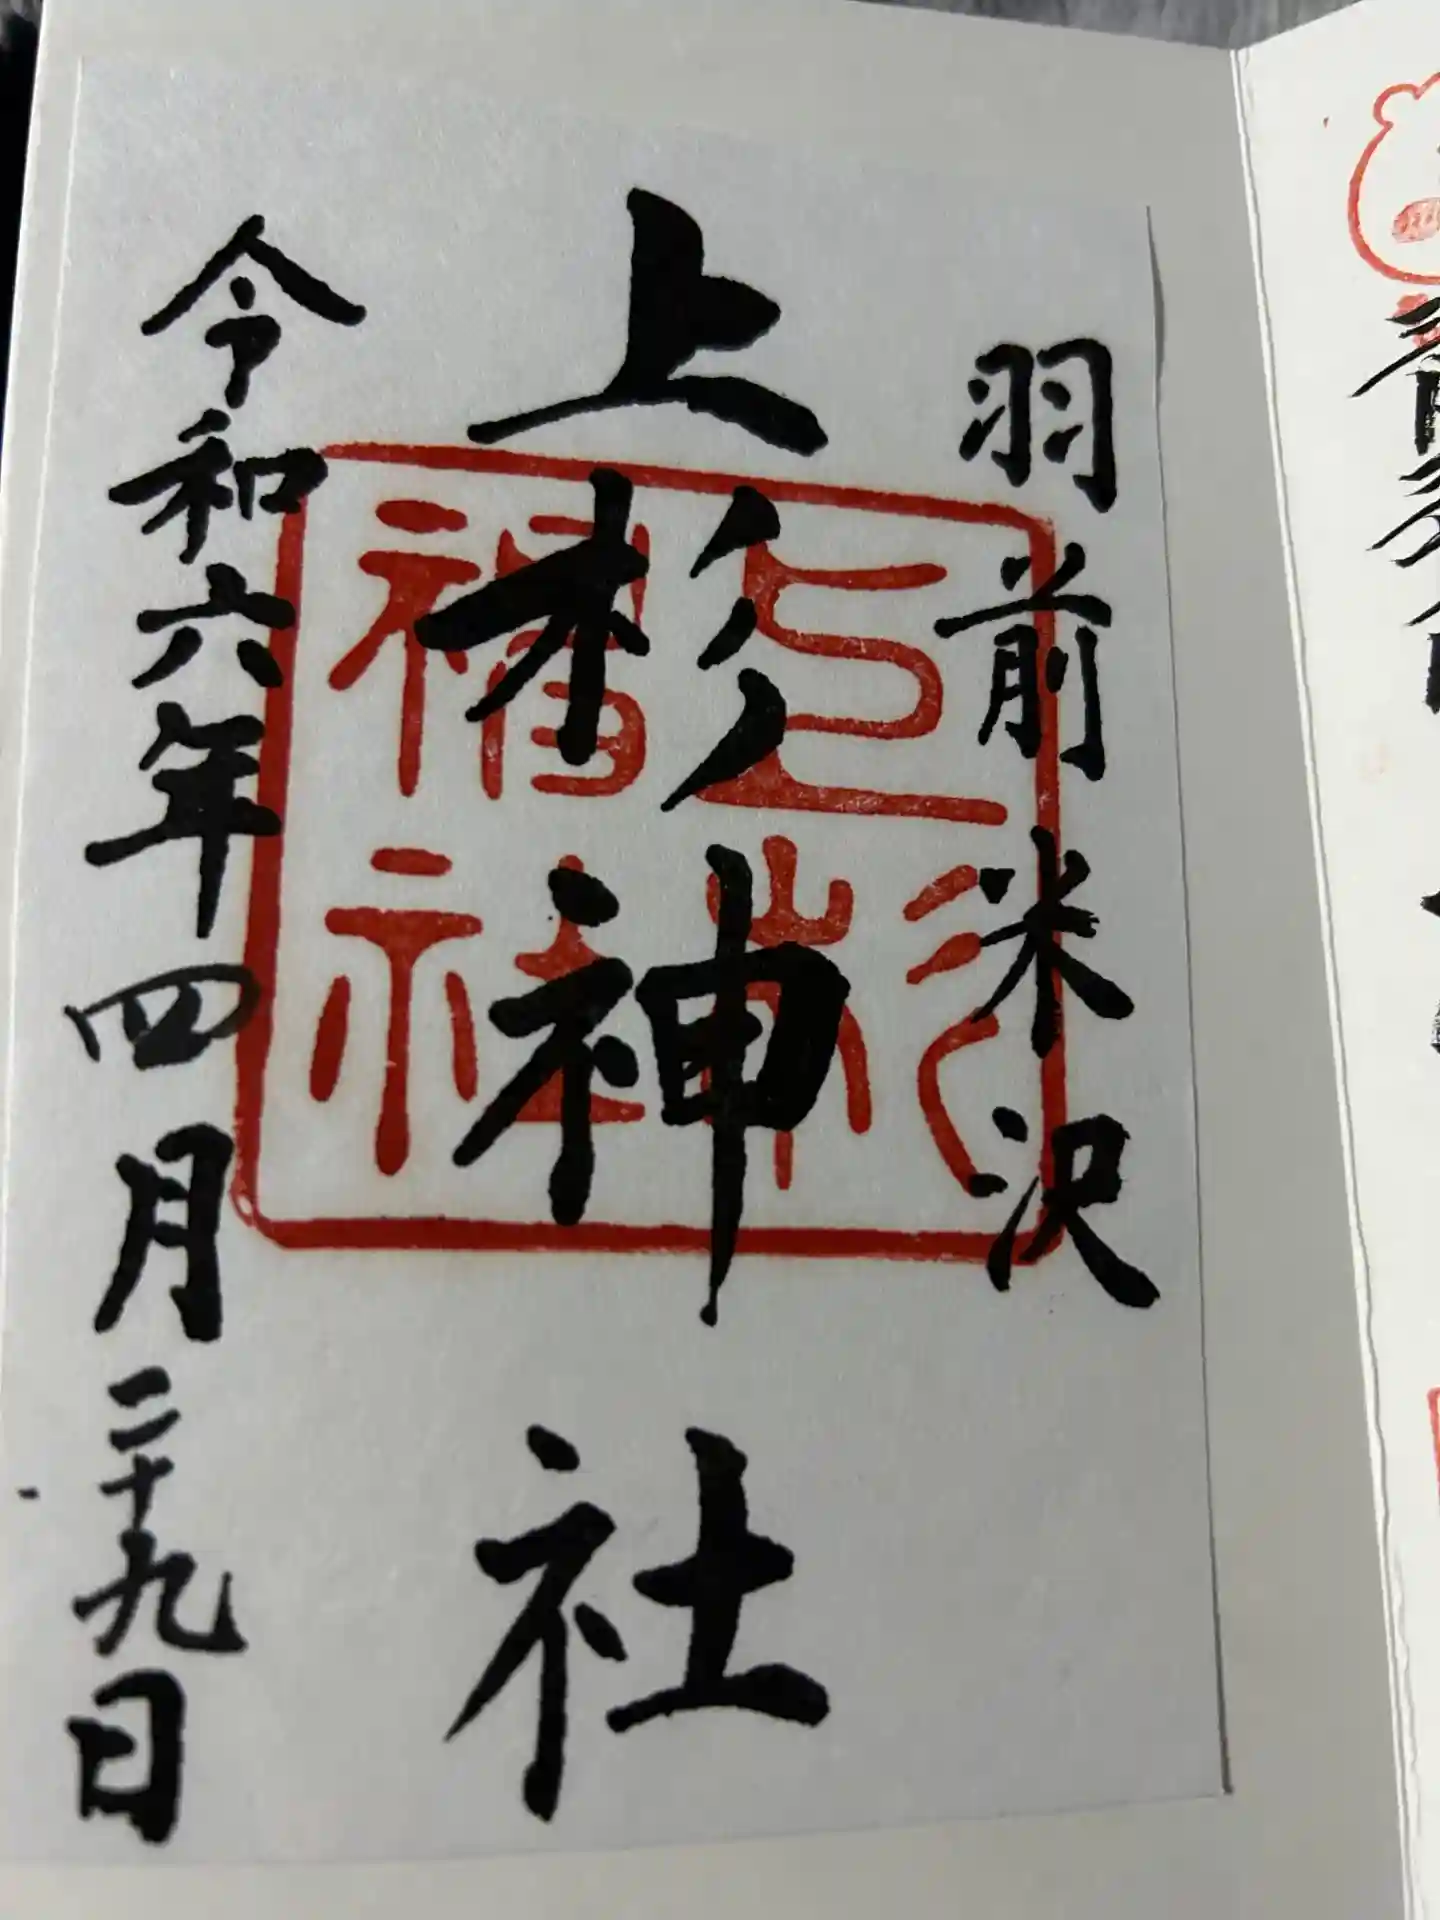 羽前米沢
上杉神社
令和六年四月二十九日